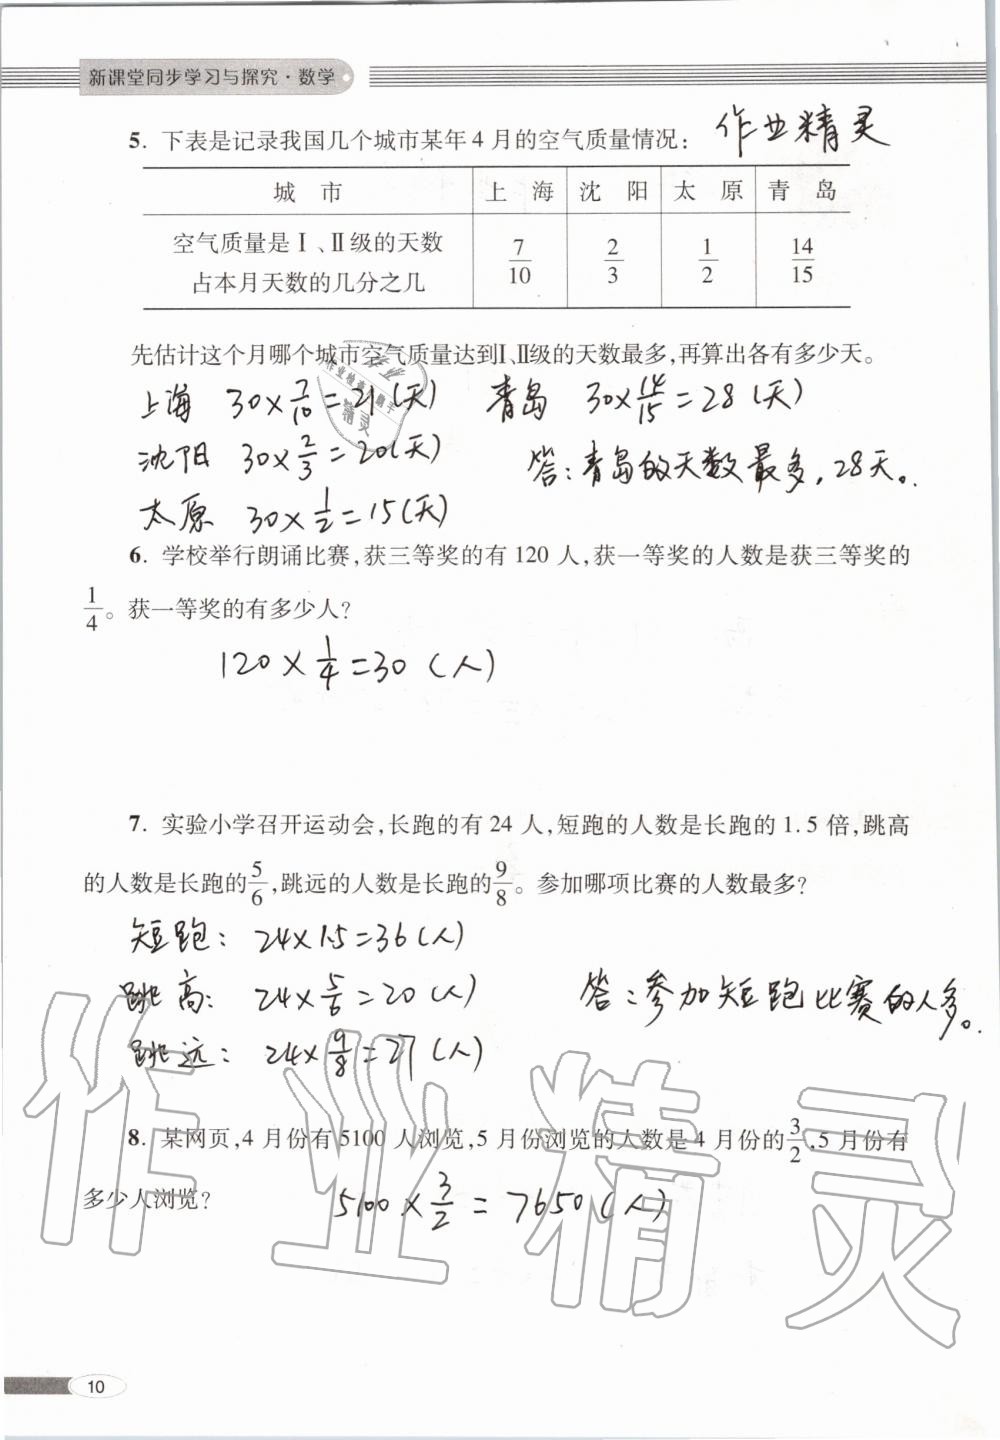 新课堂同步学习与探究·数学
作业精灵
5. 下表是记录我国几个城市某年4月的空气质量情况:
城 市 上 海 沈 阳 太 原 青 岛
空气质量是Ⅰ、Ⅱ级的天数占本月天数的几分之几 7/10 2/3 1/2 14/15
先估计这个月哪个城市空气质量达到Ⅰ、Ⅱ级的天数最多,再算出各有多少天。
上海 30×7/10=21(天) 青岛 30×14/15=28(天)
沈阳 30×2/3=20(天) 答:青岛的天数最多,28天。
太原 30×1/2=15(天)
6. 学校举行朗诵比赛,获三等奖的有120人,获一等奖的人数是获三等奖的
1/4。获一等奖的有多少人?
120×1/4=30(人)
7. 实验小学召开运动会,长跑的有24人,短跑的人数是长跑的1.5倍,跳高
的人数是长跑的5/6,跳远的人数是长跑的9/8。参加哪项比赛的人数最多?
短跑: 24×1.5=36(人)
跳高: 24×5/6=20(人) 答:参加短跑比赛的人多。
跳远: 24×9/8=27(人)
8. 某网页,4月份有5100人浏览,5月份浏览的人数是4月份的3/2,5月份有
多少人浏览?
5100×3/2=7650(人)
作业精灵
10